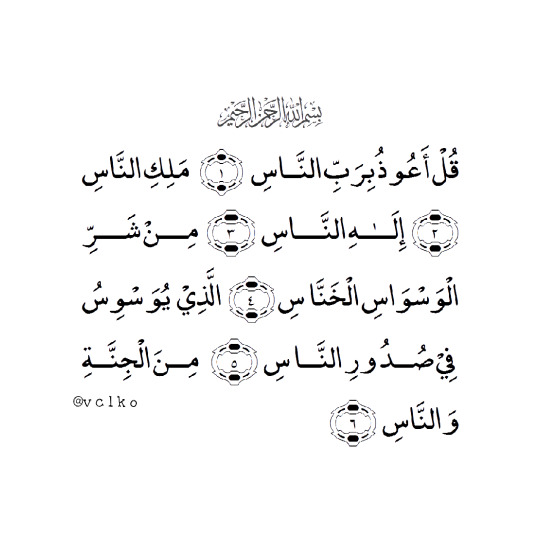 بِسْمِ اللَّهِ الرَّحْمَٰنِ الرَّحِيمِ
قُلْ أَعُوذُ بِرَبِّ النَّاسِ ١ مَلِكِ النَّاسِ
٢ إِلَٰهِ النَّاسِ ٣ مِنْ شَرِّ
الْوَسْوَاسِ الْخَنَّاسِ ٤ الَّذِيْ يُوَسْوِسُ
فِيْ صُدُورِ النَّاسِ ٥ مِنَ الْجِنَّةِ
@vclko
وَالنَّاسِ ٦